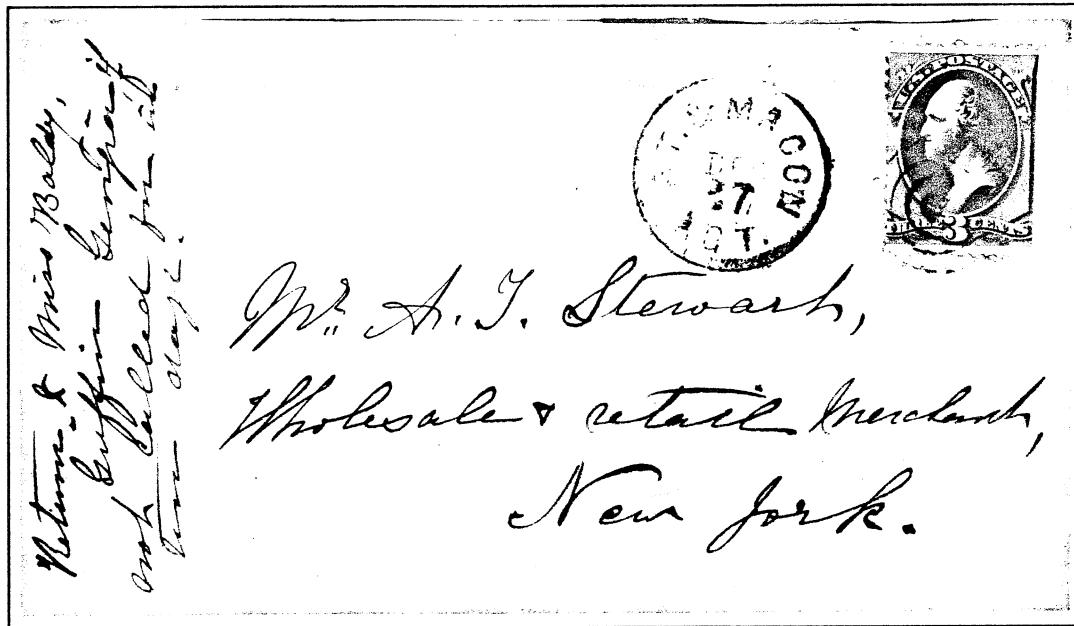 Return to Miss Baldy,
Griffin Georgia if
not called for in
ten days.
MACON
DEC
27
AGT.
U.S. POSTAGE
3 CENTS
Mr. A. T. Stewart,
Wholesale & retail Merchant,
New York.